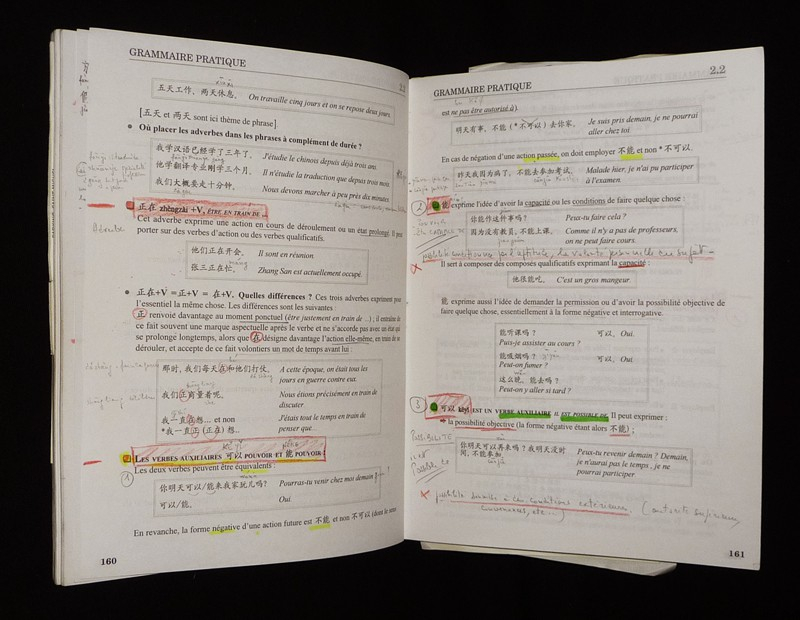 GRAMMAIRE PRATIQUE
2.2
五天工作，两天休息。 On travaille cinq jours et on se repose deux jours
[五天 et 两天 sont ici thème de phrase]
• Où placer les adverbes dans les phrases à complément de durée ?
我学汉语已经学了三年了。 J'étudie le chinois depuis déjà trois ans.
他学翻译专业刚学三个月。 Il n'étudie la traduction que depuis trois mois.
我们大概要走十分钟。 Nous devons marcher à peu près dix minutes.
正在 zhèngzài +V, ÊTRE EN TRAIN DE ...
Cet adverbe exprime une action en cours de déroulement ou un état prolongé. Il peut
porter sur des verbes d'action ou des verbes qualificatifs.
他们正在开会。 Il sont en réunion
张三正在忙。 Zhang San est actuellement occupé.
• 正在+V = 正+V = 在+V. Quelles différences ? Ces trois adverbes expriment pour
l'essentiel la même chose. Les différences sont les suivantes :
正 renvoie davantage au moment ponctuel (être justement en train de ...) ; il entraîne de
ce fait souvent une marque aspectuelle après le verbe et ne s'accorde pas avec un état qui
se prolonge longtemps, alors que 在 désigne davantage l'action elle-même, en train de se
dérouler, et accepte de ce fait volontiers un mot de temps avant lui :
那时，我们每天在和他们打仗。 A cette époque, on était tous les
jours en guerre contre eux.
我们正商量着呢。 Nous étions précisément en train de
discuter
我一直在想... et non J'étais tout le temps en train de
*我一直正 (正在) 想.. penser que...
LES VERBES AUXILIAIRES 可以 POUVOIR ET 能 POUVOIR :
Les deux verbes peuvent être équivalents :
1
你明天可以/能来我家玩儿吗? Pourras-tu venir chez moi demain ?
可以/能。 Oui
En revanche, la forme négative d'une action future est 不能 et non 不可以 (dont le sens
160
GRAMMAIRE PRATIQUE
2.2
est ne pas être autorisé à).
明天有事，不能 (*不可以) 去你家。 Je suis pris demain, je ne pourrai
aller chez toi
En cas de négation d'une action passée, on doit employer 不能 et non *不可以.
昨天我因为病了，不能去参加考试。 Malade hier, je n'ai pu participer
à l'examen.
能 exprime l'idée d'avoir la capacité ou les conditions de faire quelque chose :
你能作这件事吗? Peux-tu faire cela ?
因为没有教员，不能上课。 Comme il n'y a pas de professeurs,
on ne peut faire cours.
Il sert à composer des composés qualificatifs exprimant la capacité :
他很能吃。 C'est un gros mangeur.
能 exprime aussi l'idée de demander la permission ou d'avoir la possibilité objective de
faire quelque chose, essentiellement à la forme négative et interrogative.
能听课吗? 可以，Oui.
Puis-je assister au cours ?
能吸烟吗? 可以，Oui
Peut-on fumer ?
这么晚，能去吗?
Peut-on y aller si tard ?
3
可以 kěyǐ EST UN VERBE AUXILIAIRE IL EST POSSIBLE DE. Il peut exprimer :
➡ la possibilité objective (la forme négative étant alors 不能) ;
你明天可以再来吗? 我明天没时 Peux-tu revenir demain ? Demain,
间，不能参加. je n'aurai pas le temps, je ne
pourrai participer
161